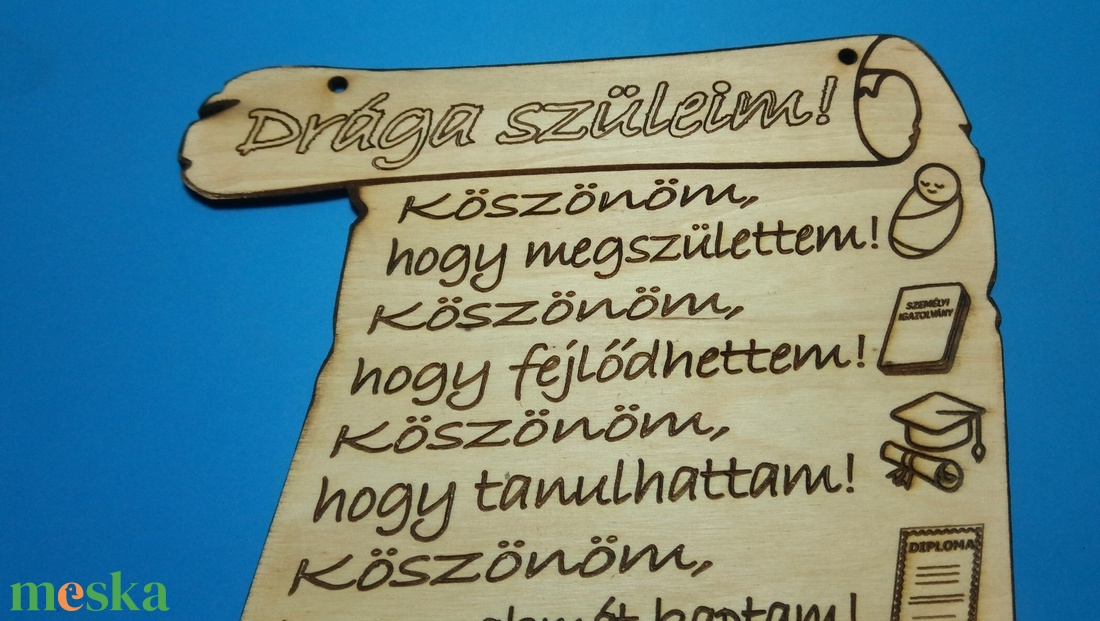 Drága szüleim!
Köszönöm,
hogy megszülettem!
Köszönöm,
SZEMÉLYI
IGAZOLVÁNY
hogy fejlődhettem!
Köszönöm,
hogy tanulhattam!
Köszönöm,
DIPLOMA
kaptam!
meska